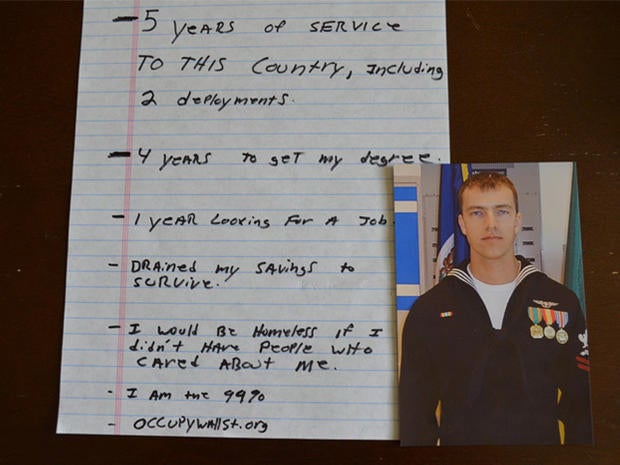 - 5 YEARS of SERVICE
TO THIS Country, Including
2 deployments.
- 4 YEARS to get my degree.
- 1 YEAR LOOKING FOR A Job.
- DRAINED my SAVINGS to
SURVIVE.
- I would Be Homeless if I
didn't HAVE PEOPLE WHO
CARED ABOUT ME.
- I AM THE 99%
- OCCUPYWALLST.ORG